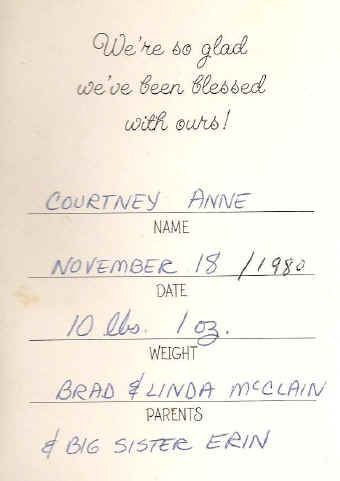 We're so glad
we've been blessed
with ours!
COURTNEY ANNE
NAME
NOVEMBER 18 / 1980
DATE
10 lbs. 1 oz.
WEIGHT
BRAD & LINDA McCLAIN
PARENTS
& BIG SISTER ERIN